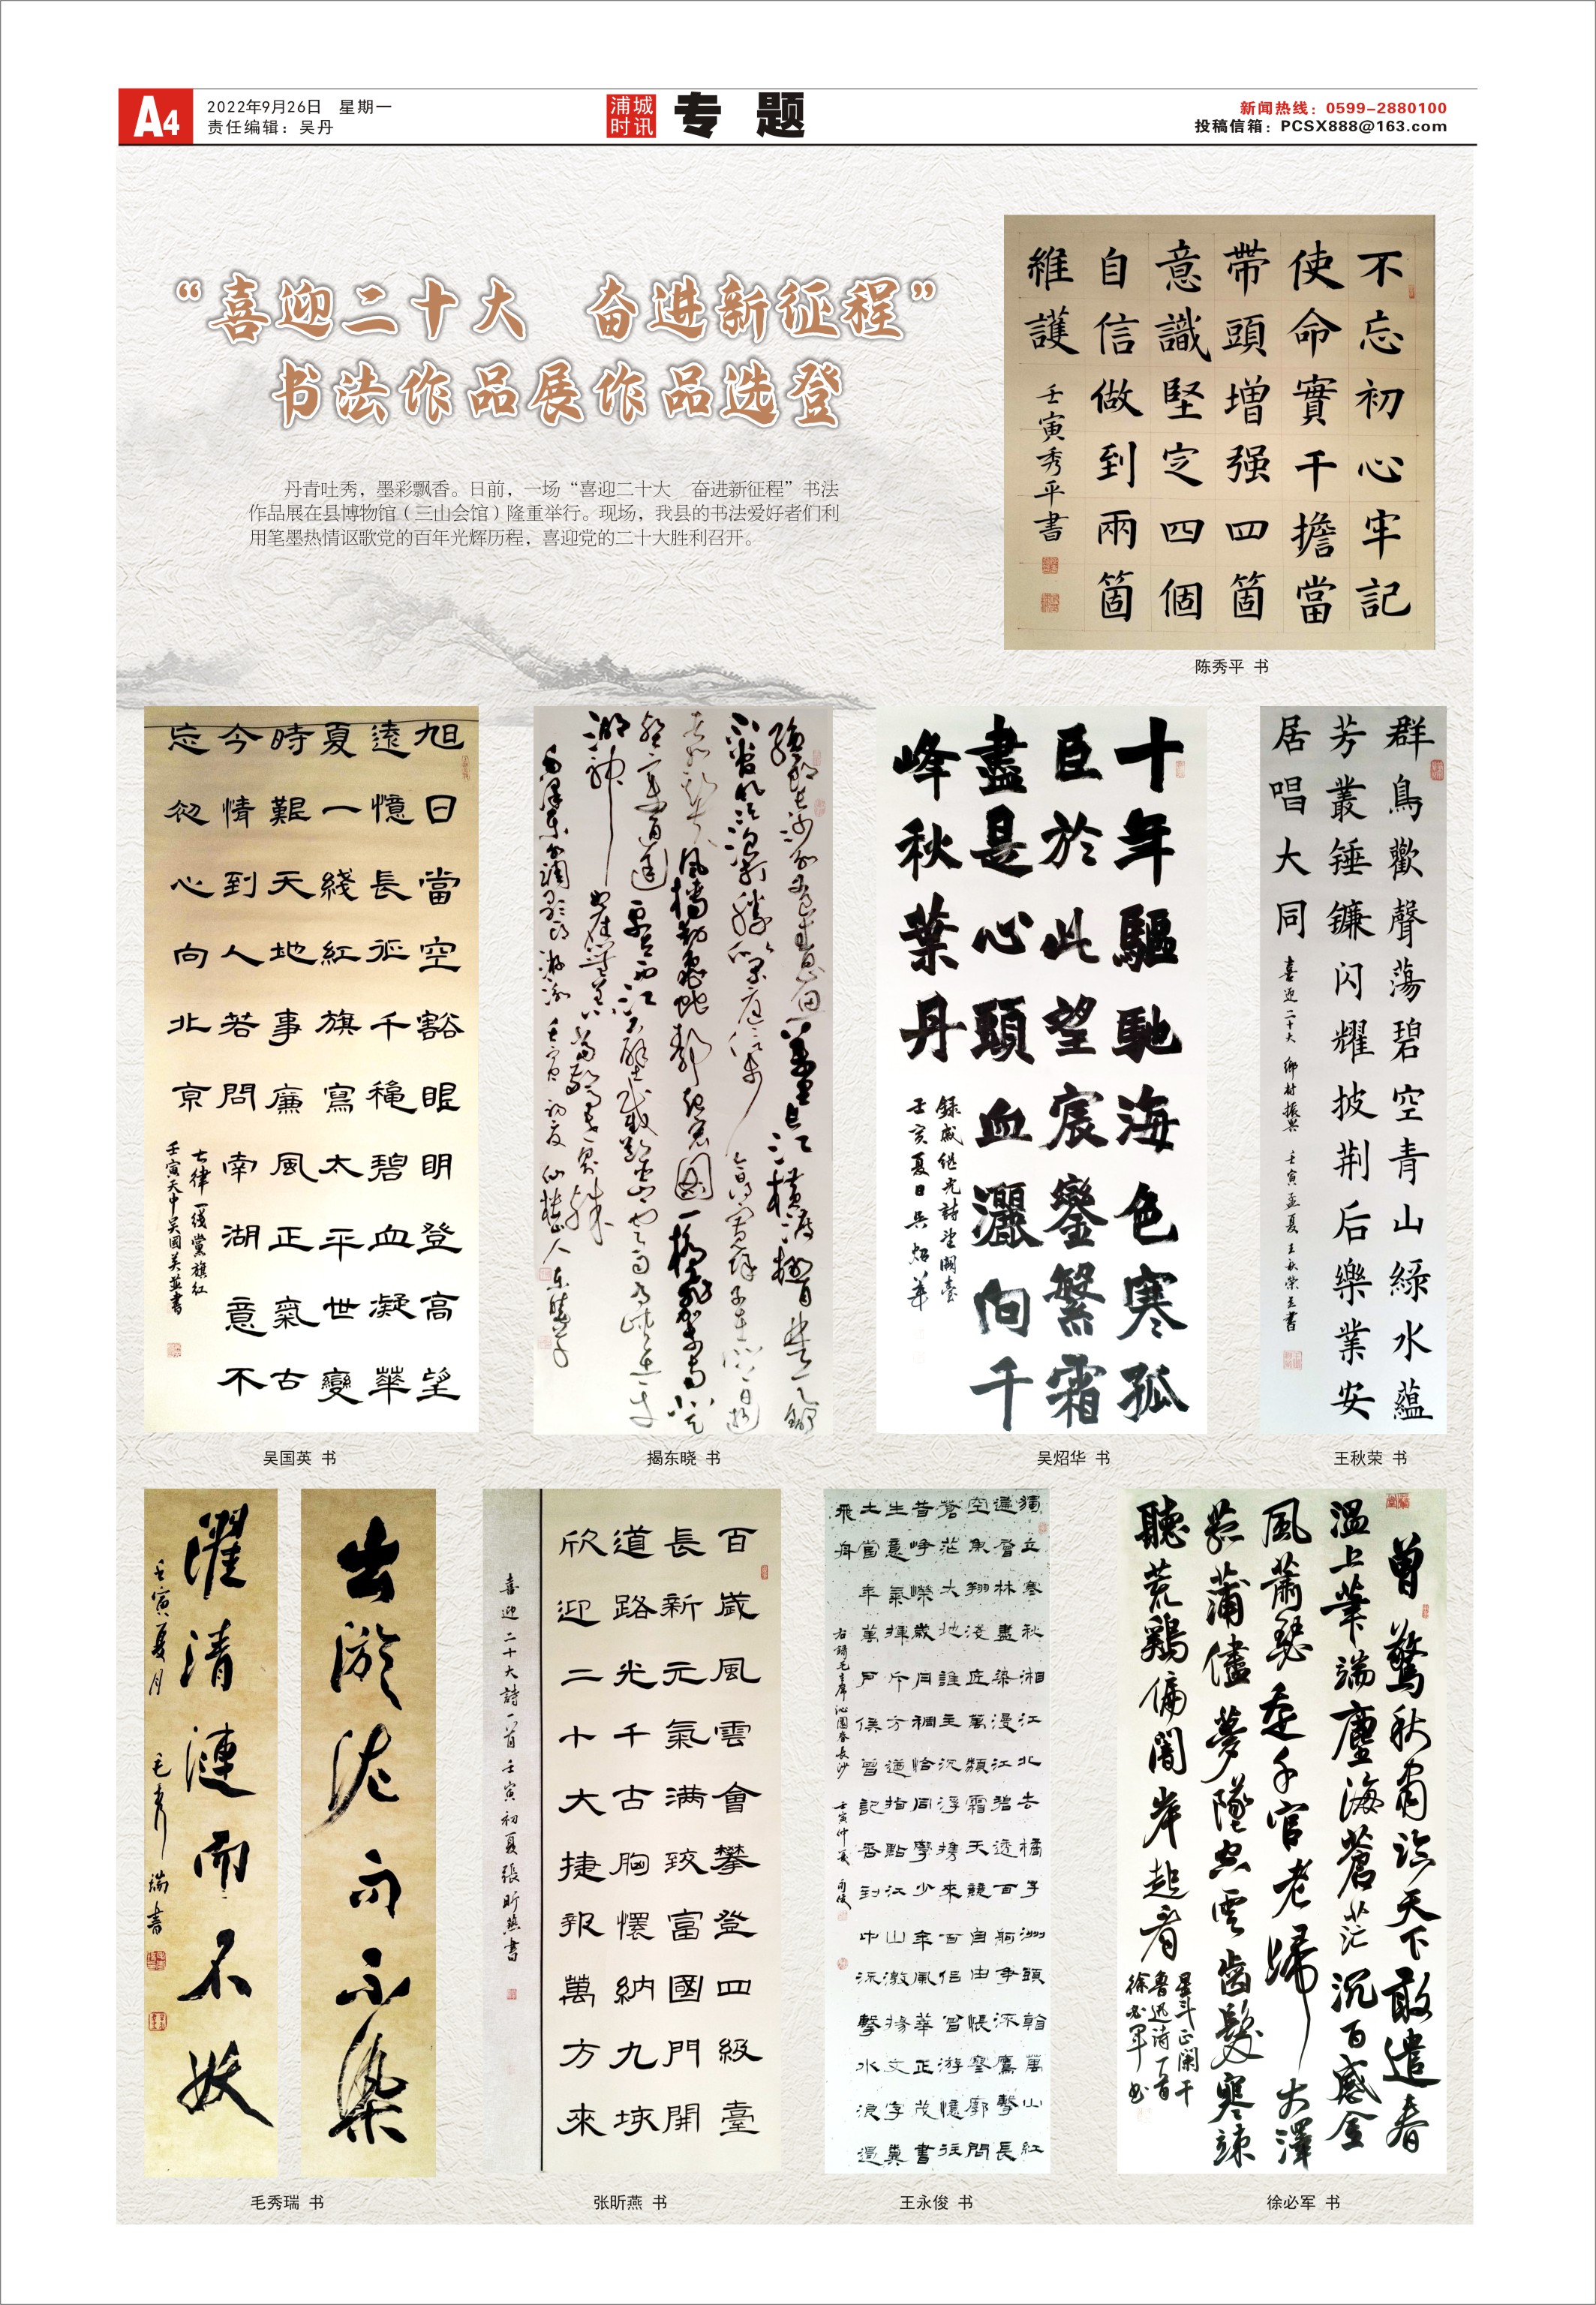 A4
2022年9月26日 星期一
责任编辑：吴丹
浦城时讯
专 题
新闻热线：0599-2880100
投稿信箱：PCSX888@163.com
“喜迎二十大 奋进新征程”
书法作品展作品选登
丹青吐秀，墨彩飘香。日前，一场“喜迎二十大 奋进新征程”书法
作品展在县博物馆（三山会馆）隆重举行。现场，我县的书法爱好者们利
用笔墨热情讴歌党的百年光辉历程，喜迎党的二十大胜利召开。
不忘初心牢记
使命實干擔當
帶頭增强四箇
意識堅定四個
自信做到兩箇
維護
壬寅秀平書
陈秀平 书
旭日當空豁眼明登高望
遠憶長征千穐碧血凝華
夏一綫紅旗寫太平世變
時艱天地事廉風正氣古
今情到人若問南湖意不
忘初心向北京
七律一线黨旗红
壬寅天中吴國英並書
吴国英 书
揭东晓 书
十年驅馳海色寒孤
臣於此望宸鑾繁霜
盡是心頭血灑向千
峰秋葉丹
録戚继光詩望闕臺
吴炤华 书
群鳥歡聲蕩碧空青山緑水蘊
芳叢锤镰闪耀披荆后樂業安
居唱大同
喜迎二十大 鄉村振興 壬寅孟夏王秋榮書
王秋荣 书
出淤泥而不染
濯清漣而不妖
壬寅夏月
毛秀瑞書
毛秀瑞 书
百歲風雲會攀登四級臺
長新元氣满致富國門開
道路光千古胸懷納九垓
欣迎二十大捷報萬方來
喜迎二十大詩一首壬寅初夏張昕燕書
张昕燕 书
獨立寒秋湘江北去橘子洲頭看萬山紅
遍層林盡染漫江碧透百舸争流鷹擊長
空魚翔淺底萬類霜天競自由悵寥廓問
蒼茫大地誰主沉浮携來百侣曾游憶往
昔崢嶸歲月稠恰同學少年風華正茂書
生意氣揮斥方遒指點江山激揚文字糞
土當年萬户侯曾記否到中流擊水浪遏
飛舟
右録毛主席沁園春長沙 壬寅仲夏 永俊
王永俊 书
曾驚秋肅臨天下敢遣春
温上筆端塵海蒼茫沉百感金
風蕭瑟走千官老歸大澤
菰蒲儘夢墜空雲齒髮寒竦
聽荒鷄偏闃岸起看
星斗正闌干
鲁迅诗一首
徐必軍书
徐必军 书